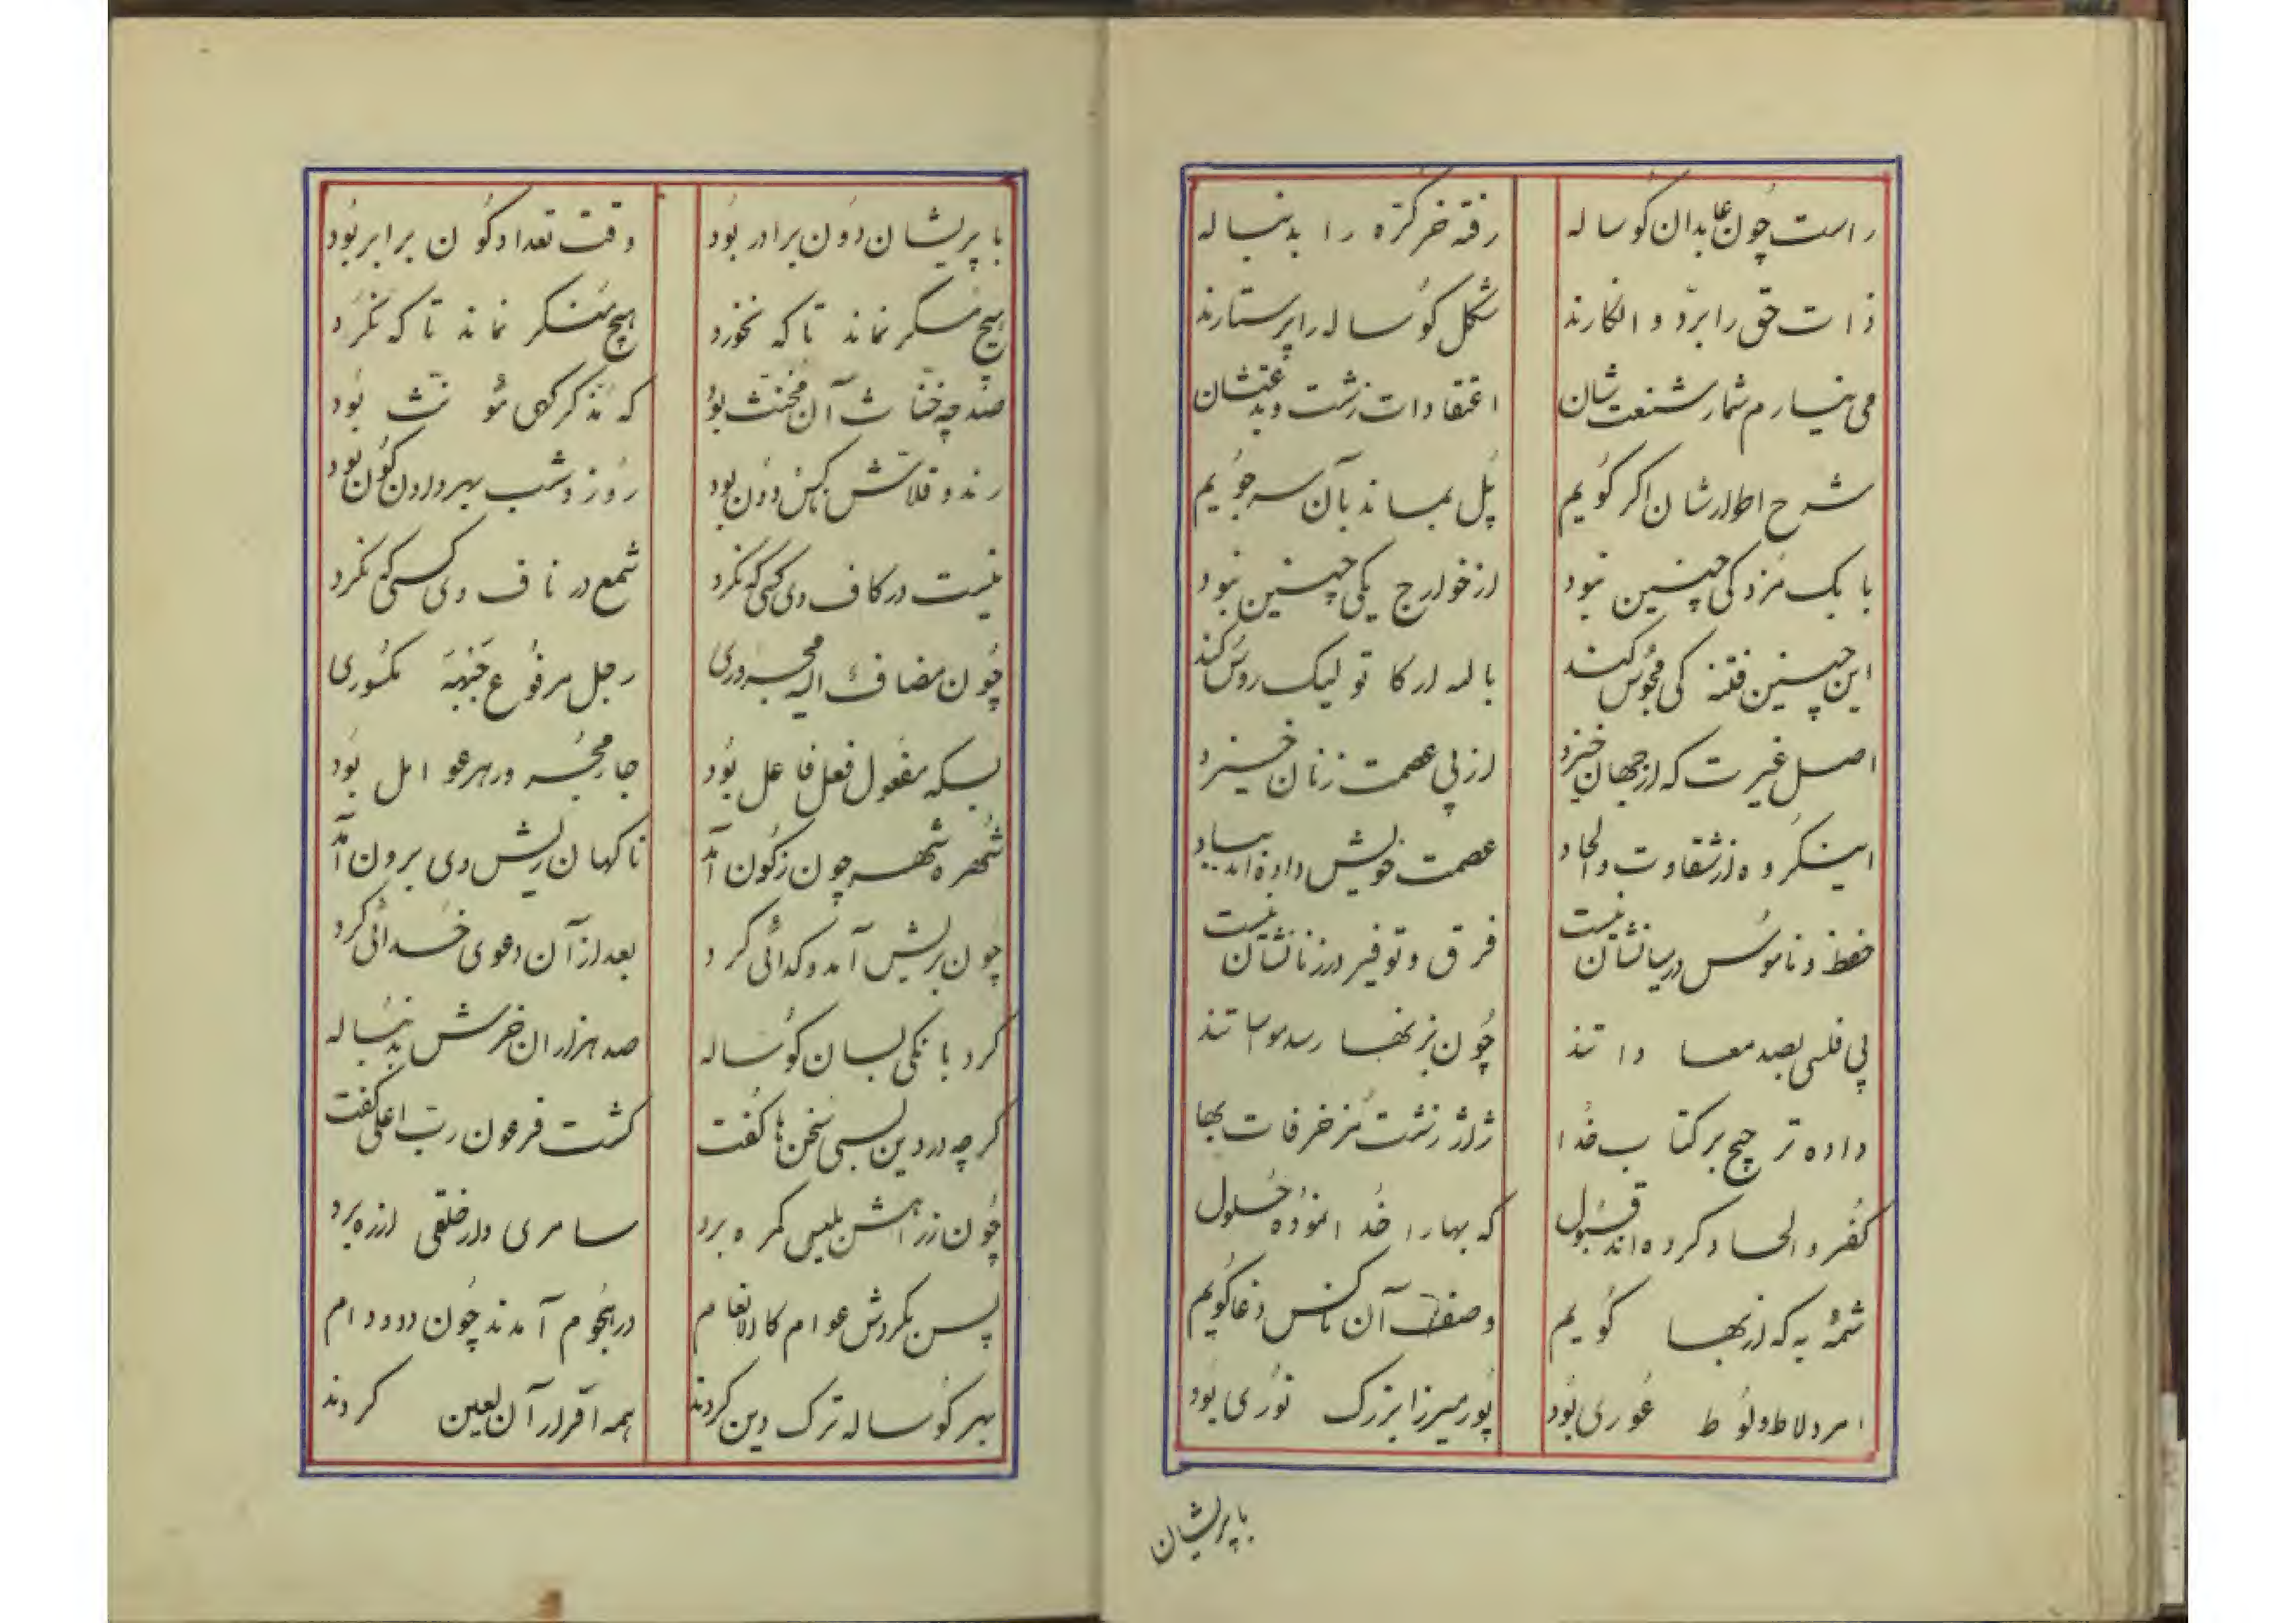 راست چون عابدان کوساله رفته خر کره را بدنباله
ذات حق را برد و انکارند شکل کوساله را پرستارند
می نیارم شمار شنعت‌شان اعتقادات زشت و بدعتشان
شرح اطوارشان اکر کویم پل بماند بآن سر جویم
بابک مزدکی چنین نبود از خوارج یکی چنین نبود
این چنین فتنه کی مجوس کند
اصل غیرت که از جهان خیزد از پی عصمت زنان خیزد
اینکروه از شقاوت و الحاد عصمت خویش داده‌اند بباد
حفظ و ناموس در میانشان نیست فرق و توفیر در زنانشان نیست
چون بزنها
داده ترجیح بر کتاب خدا ژاژ زشت مزخرفات بها
کفر و الحاد کرده‌اند قبول که بها را خدا نموده حلول
شمهٔ به که از بها کویم وصف آن ناکس دغا کویم
امرد لاط و لوط غوری بود پور میرزا بزرک نوری بود
باپریشان
با پریشان دون برادر بود وقت تعداد کون برابر بود
هیچ مسکر نماند تا که نخورد هیچ منکر نماند تا که نکرد
صد چه خناث آن مخنث بود که مذکر کهی مؤنث بود
رند و قلاش ناکس دون بود روز و شب بهر دادن کون بود
نیست در کاف وی کسی که نکرد شمع در ناف وی کسی که نکرد
چون مضاف الیه مجروری رجل مرفوع جنبهٔ مکسوری
بسکه مفعول فعل فاعل بود جار مجر در هر عوامل بود
شهره شهر چون ز کون آمد ناکهان ریش وی برون آمد
چون بریش آمد و کدائی کرد بعد از آن دعوی خدائی کرد
کرد بانکی بسان کوساله صد هزاران خرش بدنباله
کرچه در دین بسی سخن‌ها کفت کشت فرعون رب اعلی کفت
چون ز راهش بلیس کمره برد سامری وار خلقی از ره برد
پس بکردش عوام کالانعام در هجوم آمدند چون دد و دام
بهر کوساله ترک دین کردند همه اقرار آن لعین کردند